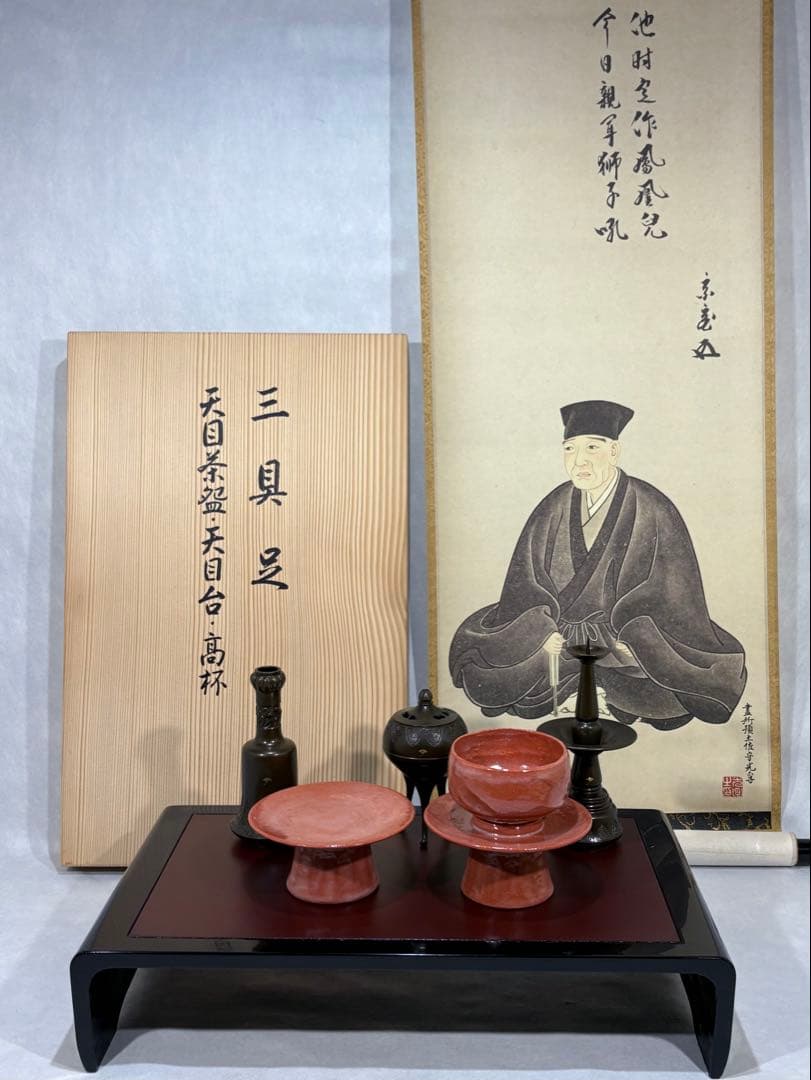 三具足
天目茶盌・天目台・高杯
他时定作鳳凰兒
今日親耳獅子吼
畫所預土佐守光孚